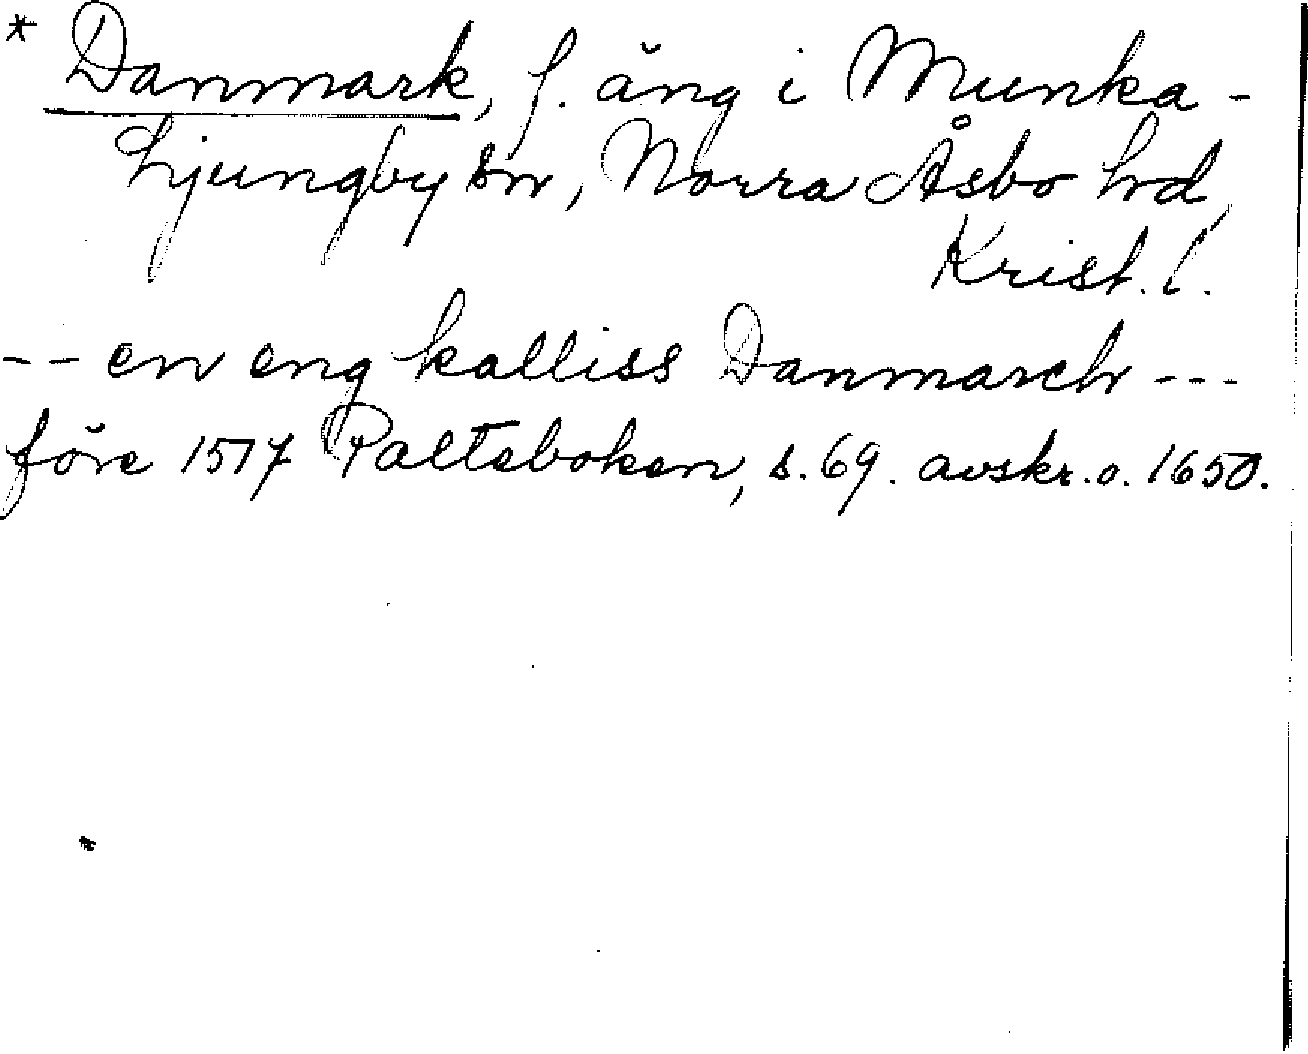 * Danmark, f. äng i Munka-
Ljungby sn, Norra Åsbo hd,
Krist. l.
-- en eng kalliss Danmarch ---
före 1517 Palteboken, s. 69. avskr. o. 1650.